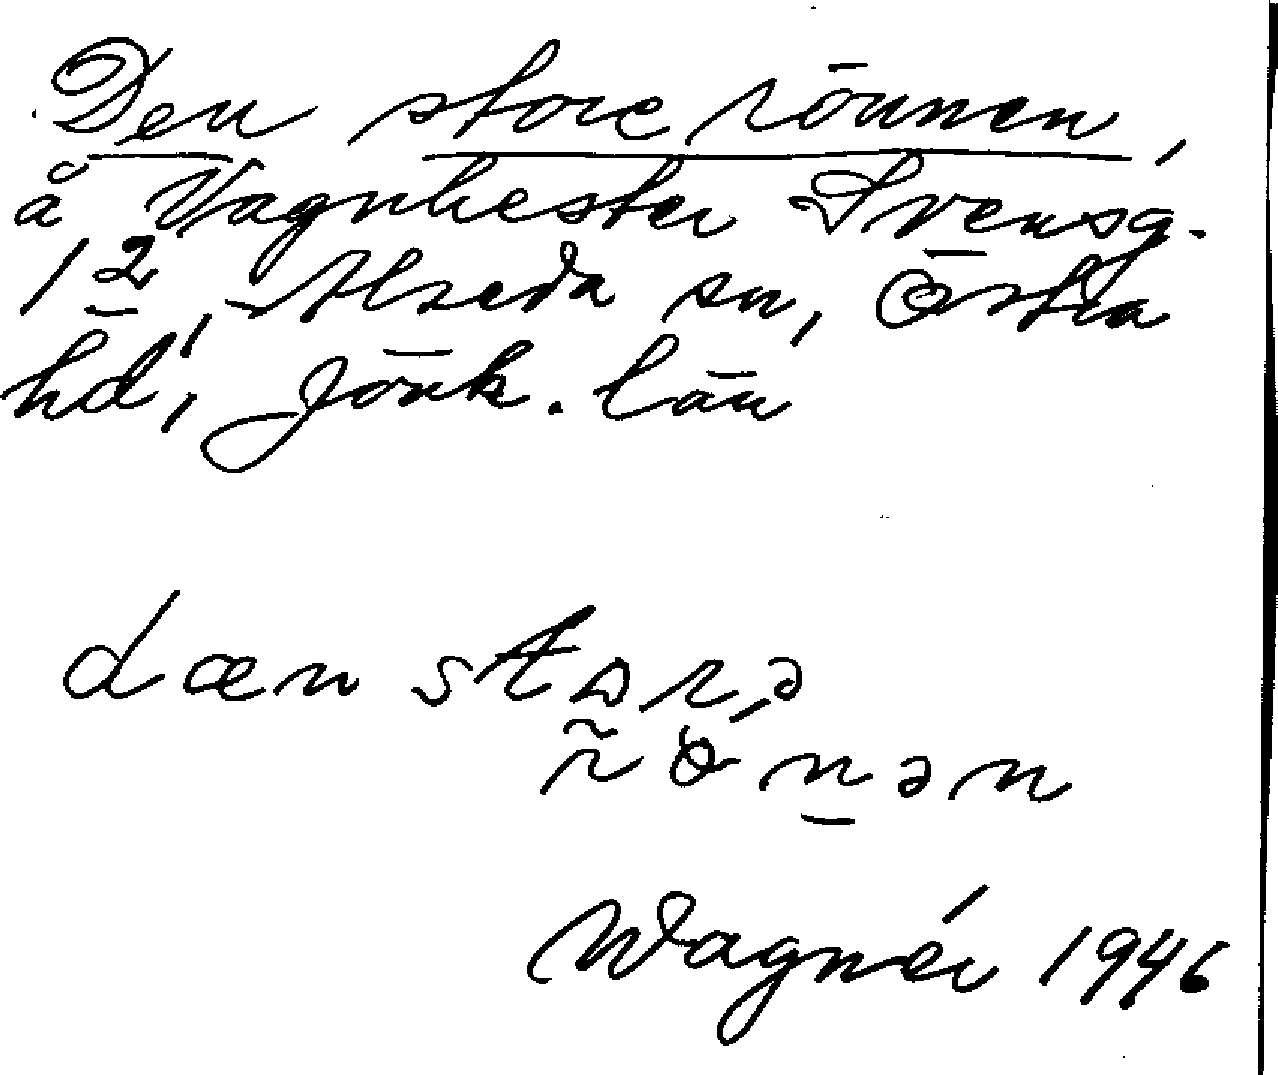 Den store rönnen,
å Vagnhester Svensg.
1 2, Alseda sn, Östra
hd, Jönk. län
dæn stɒrə
r̃ònən
Wagnér 1946